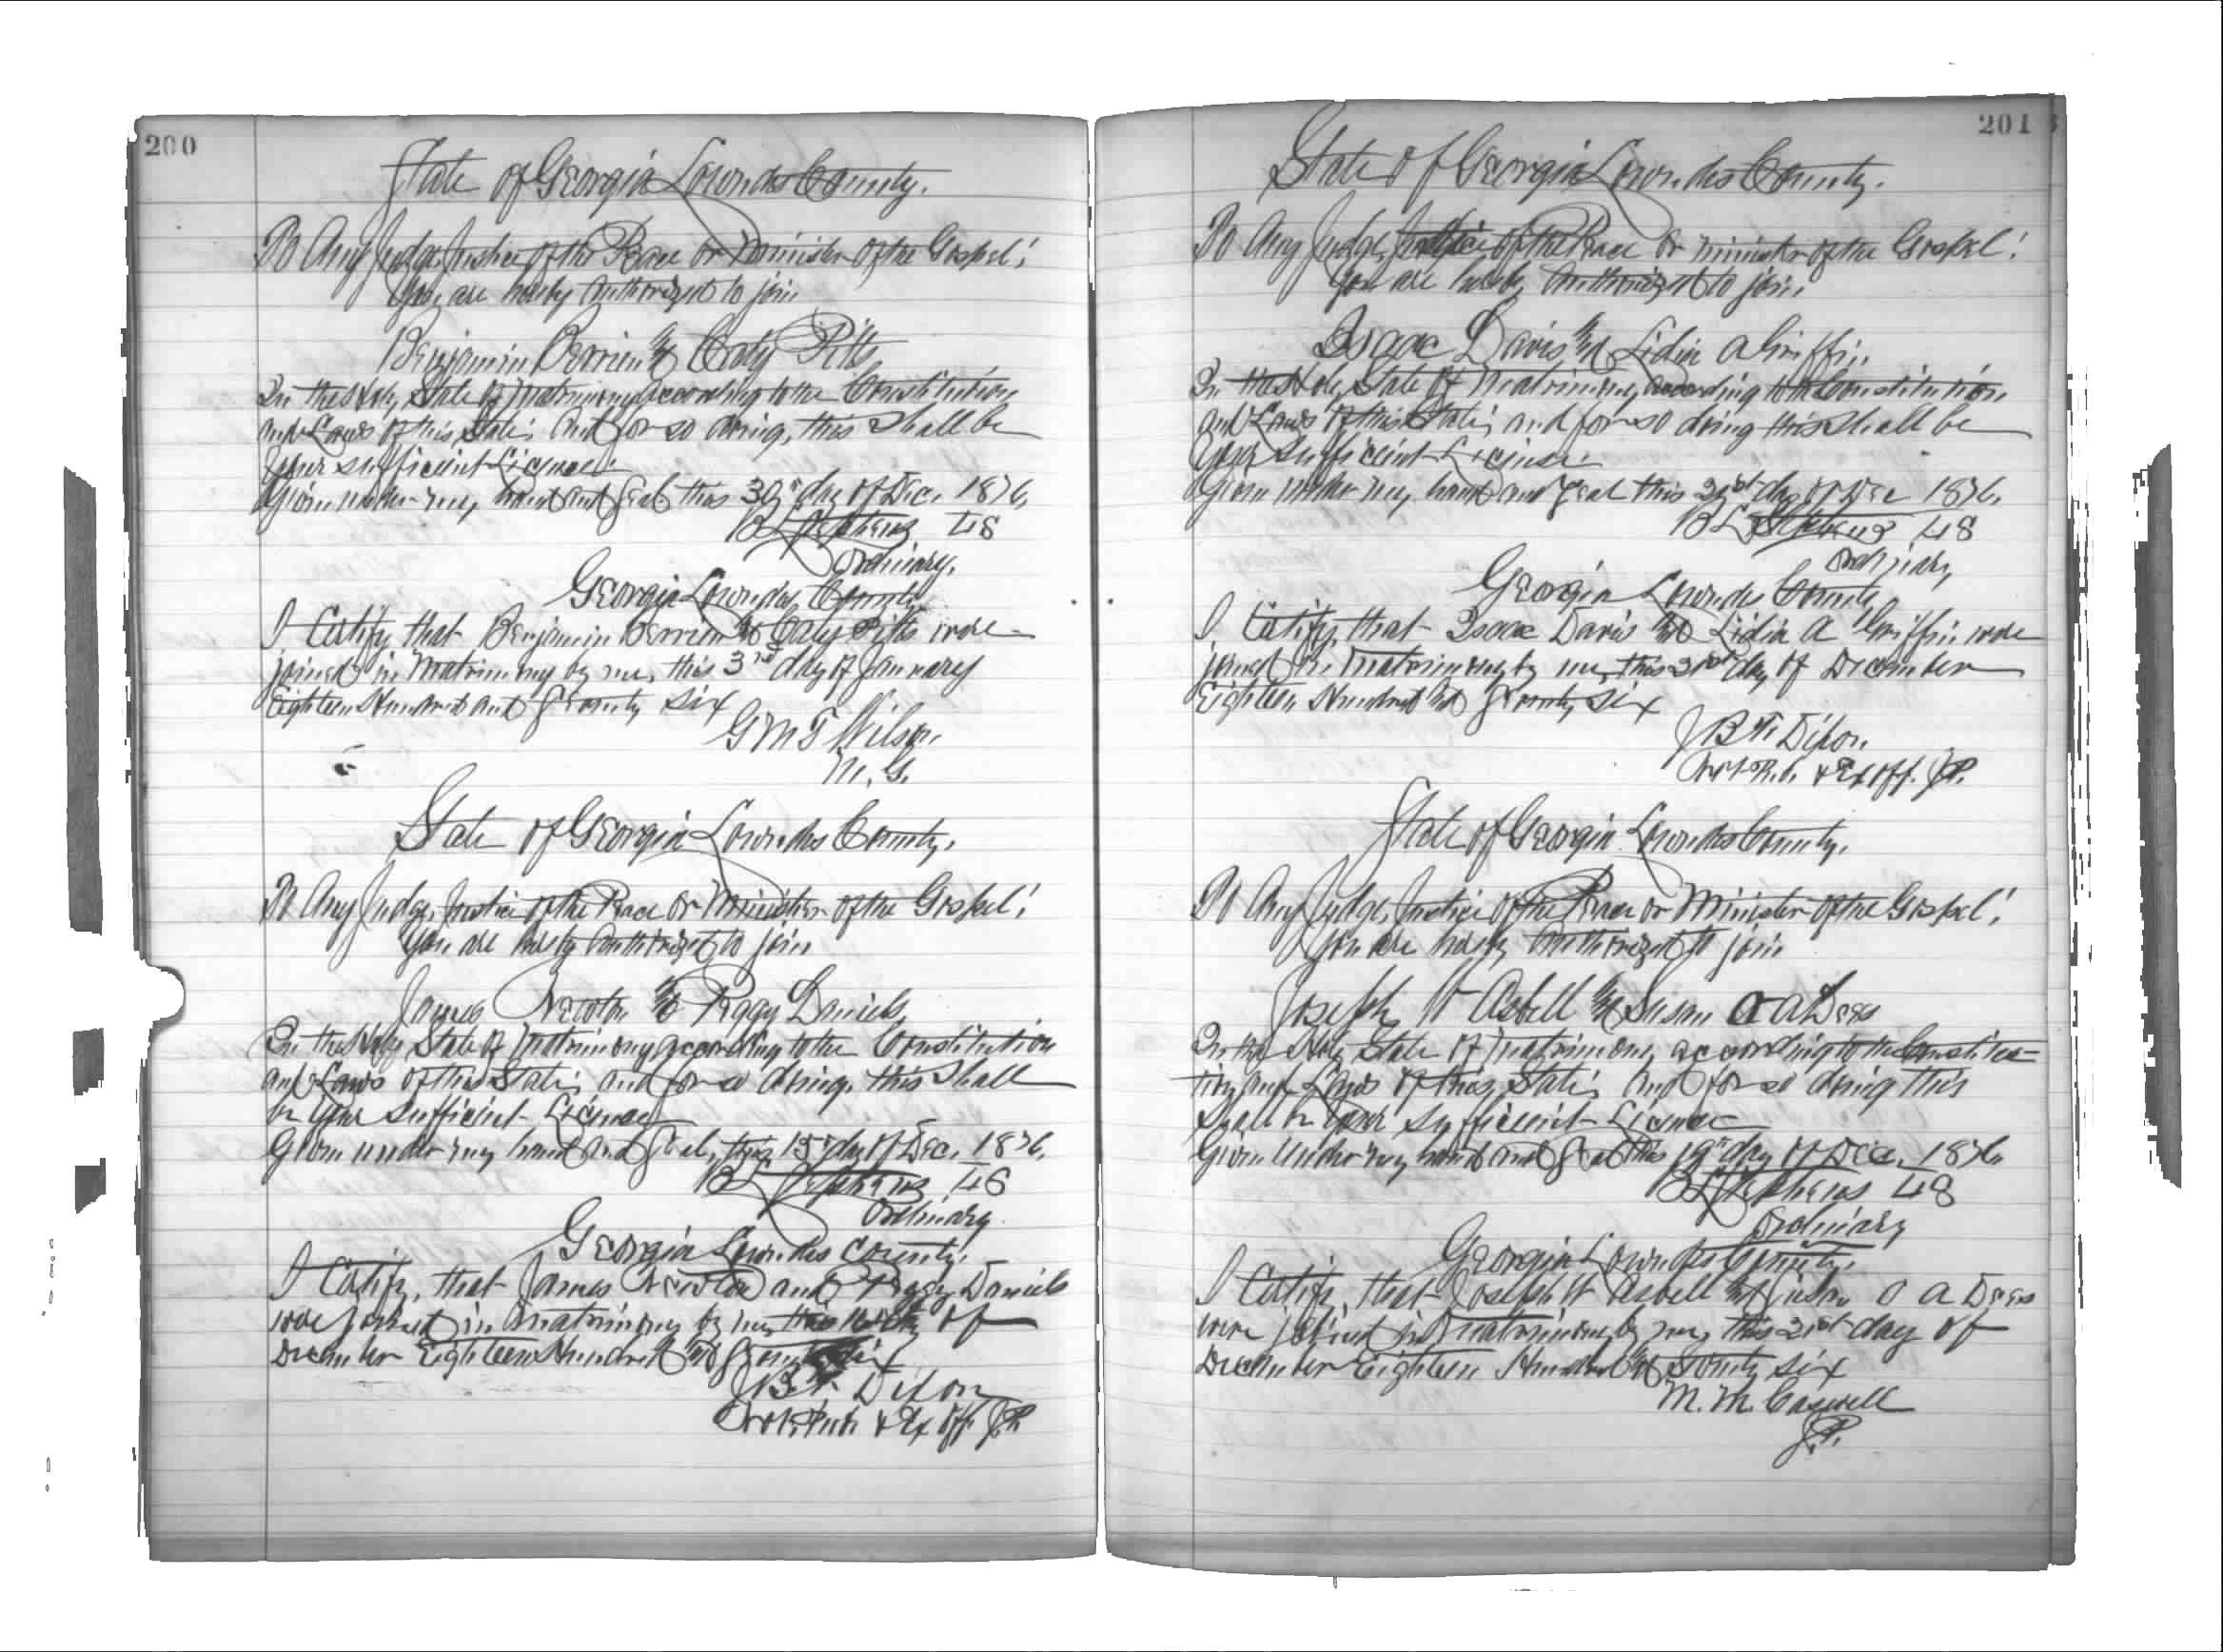 200
State of Georgia Lowndes County.
To Any Judge, Justice of the Peace or Minister of the Gospel!
You are hereby authorized to join
Benjamin Berrien and Caty Pitts
In the Holy State of Matrimony according to the Constitution
and Laws of this State; and for so doing, this shall be
your sufficient License.
Given under my hand and seal this 30th day of Dec. 1876.
B L Stephens LS
Ordinary.
Georgia Lowndes County
I Certify that Benjamin Berrien and Caty Pitts were
joined in matrimony by me, this 3rd day of January
Eighteen Hundred and Seventy six
G M T Wilson.
M. G.
State of Georgia Lowndes County.
To Any Judge, Justice of the Peace or Minister of the Gospel!
You are hereby authorized to join
James Newton and Peggy Daniels
In the Holy State of Matrimony according to the Constitution
and Laws of this State; and for so doing, this shall
be your sufficient License
Given under my hand and seal, this 15th day of Dec. 1876.
B L Stephens LS
Ordinary
Georgia Lowndes County.
I Certify, that James Newton and Peggy Daniels
were joined in matrimony by me, this day of
December Eighteen Hundred and Seventy six
J B Dixon
Not. Pub. & Ex Off. J.P.
201
State of Georgia Lowndes County.
To Any Judge, Justice of the Peace or Minister of the Gospel!
You are hereby authorized to join
Isaac Davis and Lidia A Griffin
In the Holy State of Matrimony, according to the Constitution
and Laws of this State; and for so doing this shall be
your sufficient License.
Given under my hand and seal this 21st day of Dec 1876.
B L Stephens LS
Ordinary
Georgia Lowndes County
I Certify, that Isaac Davis and Lidia A Griffin were
joined in matrimony by me, this 31st day of December
Eighteen Hundred and Seventy six
J B Dixon.
Not. P. & Ex Off. J.P.
State of Georgia Lowndes County.
To Any Judge, Justice of the Peace or Minister of the Gospel!
You are hereby authorized to join
Joseph W Asbell and Susan O A Dees
In the Holy State of Matrimony according to the Constitu-
tion and Laws of this State; and for so doing this
shall be your sufficient License
Given under my hand and seal this 19th day of Dec. 1876.
B L Stephens LS
Ordinary
Georgia Lowndes County.
I Certify, that Joseph W Asbell and Susan O A Dees
were joined in matrimony by me, this 21st day of
December Eighteen Hundred and Seventy six
M. M. Caswell
J.P.